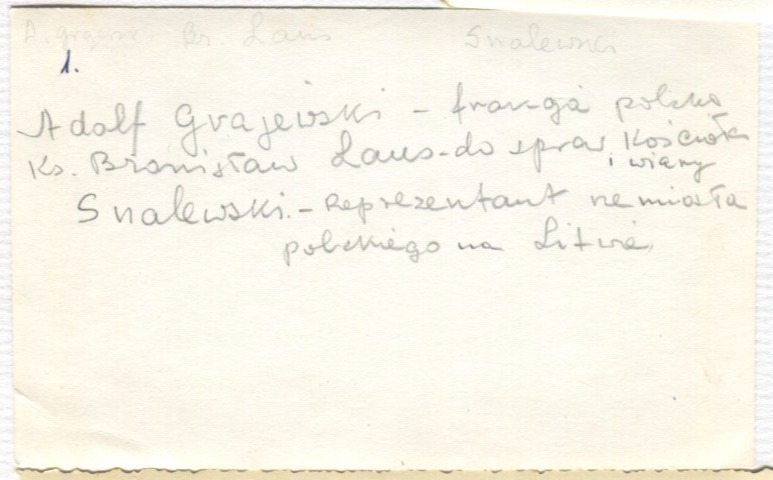 A. Grajewski Br. Laus Snalewski
1.
Adolf Grajewski – frakcja polska
Ks. Bronisław Laus – do spraw Kościoła
i wiary
Snalewski. – Reprezentant rzemiosła
polskiego na Litwie.